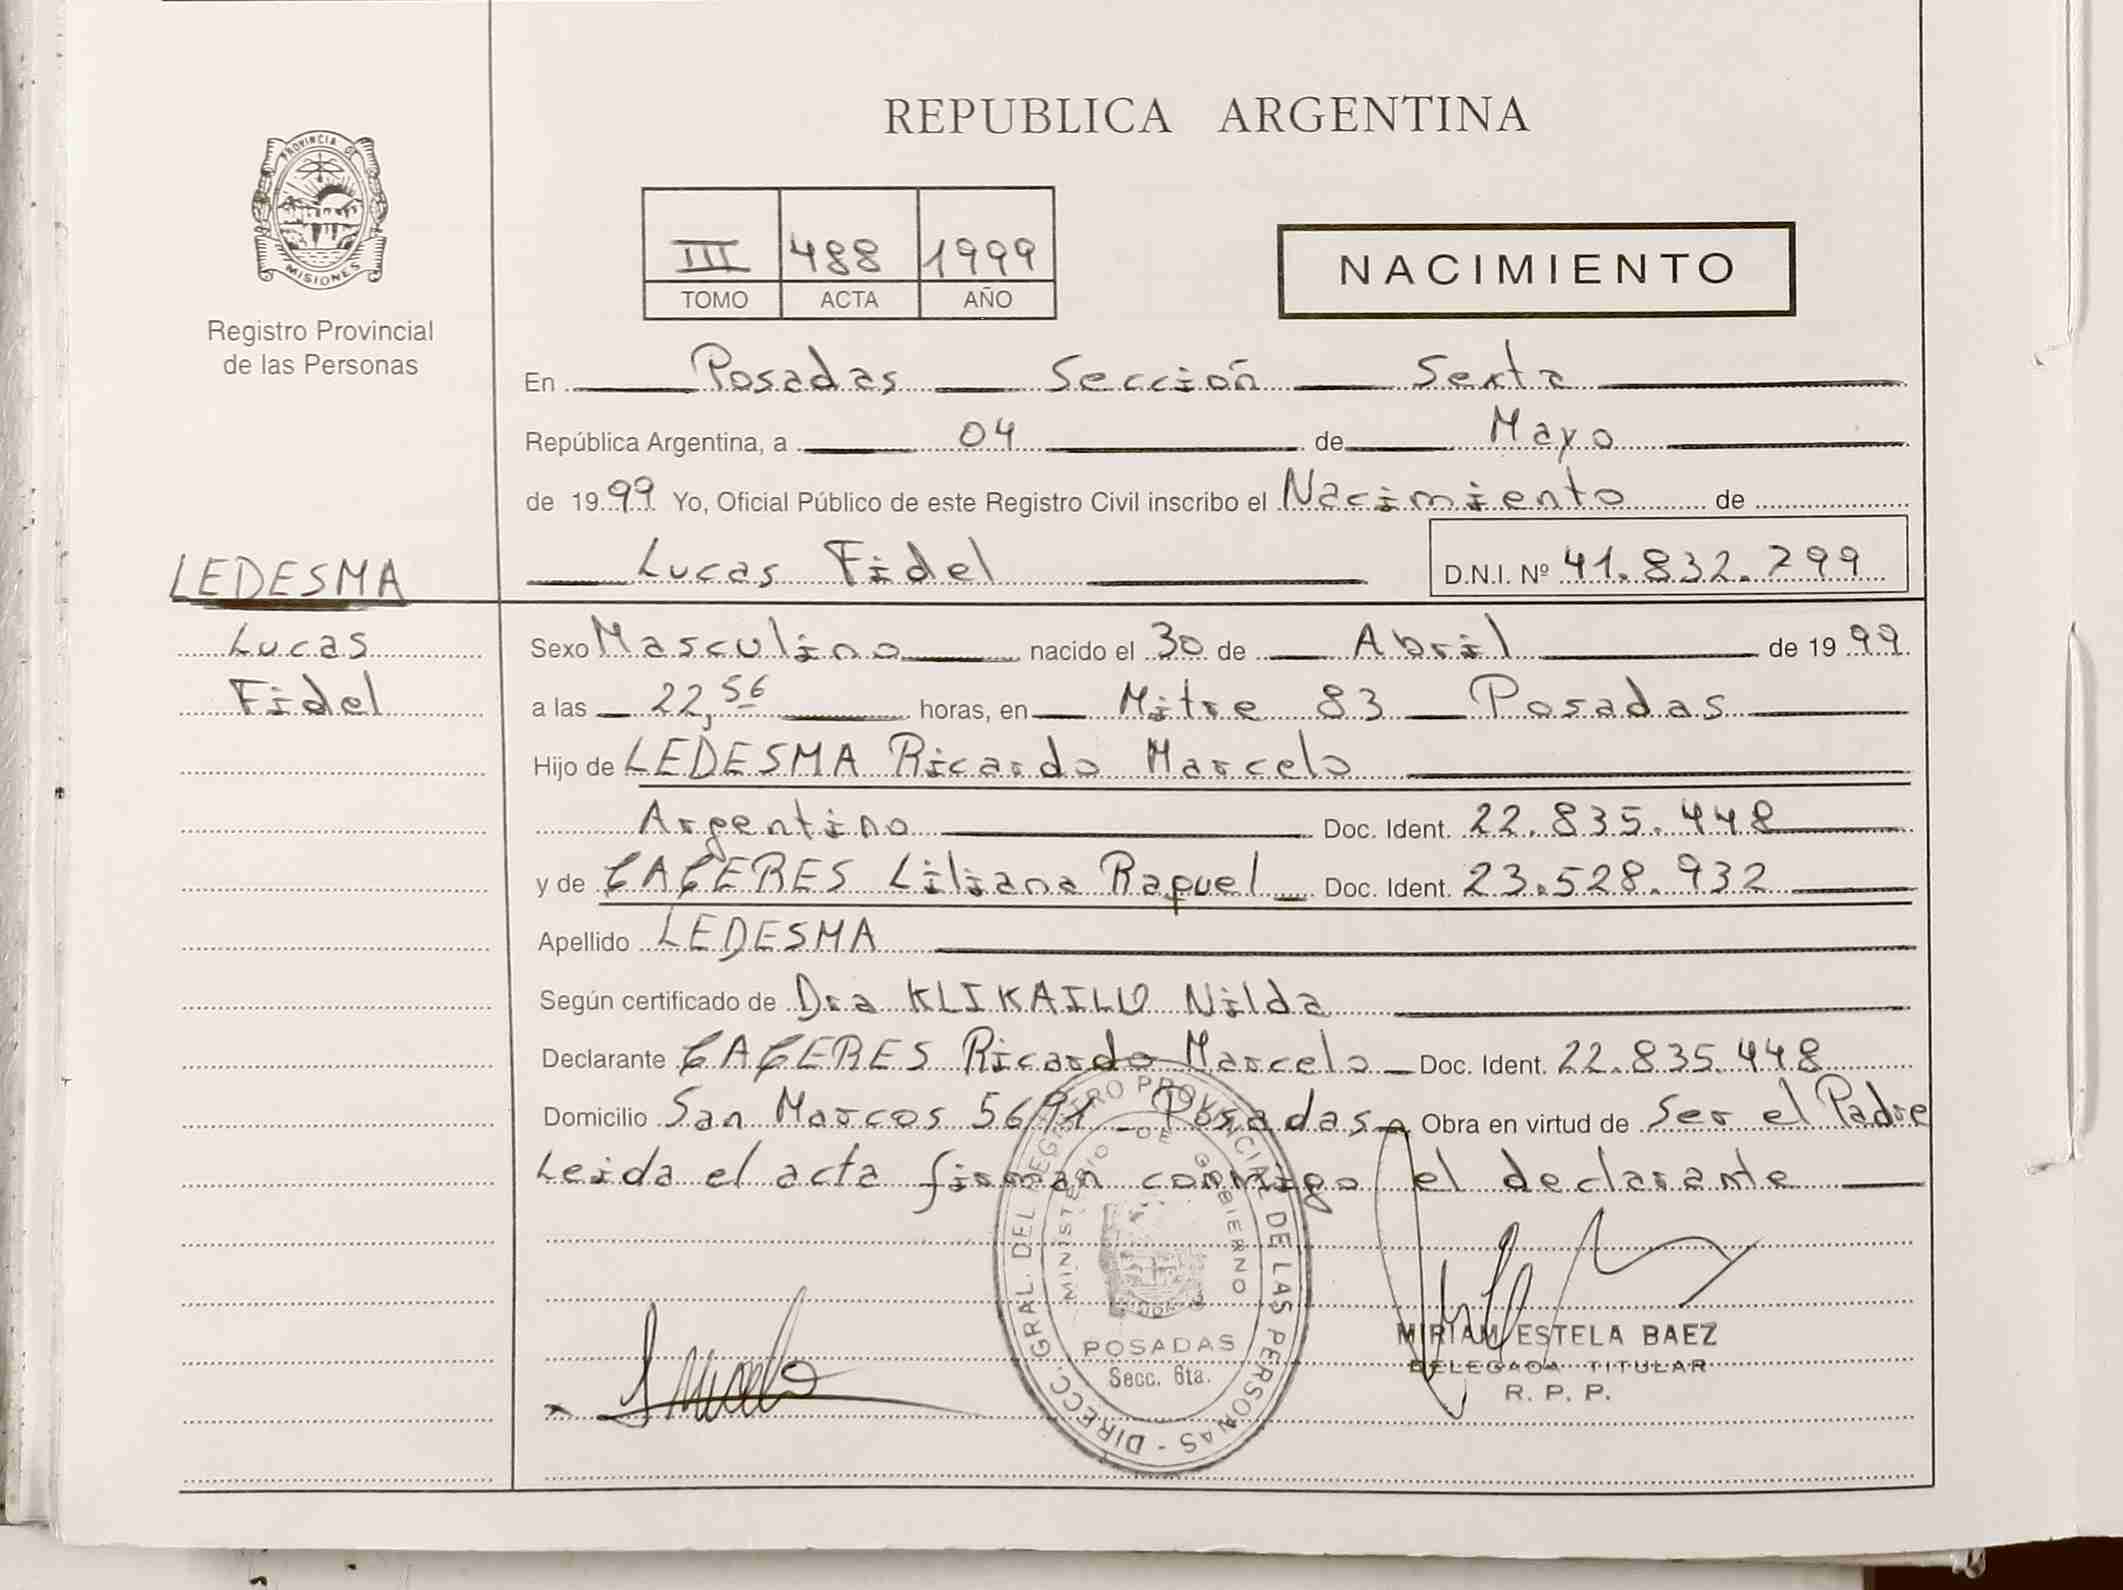 PROVINCIA DE
MISIONES
Registro Provincial
de las Personas
LEDESMA
Lucas
Fidel
REPUBLICA ARGENTINA
III 488 1999
TOMO ACTA AÑO
NACIMIENTO
En Posadas Sección Sexta
República Argentina, a 04 de Mayo
de 1999 Yo, Oficial Público de este Registro Civil inscribo el Nacimiento de
Lucas Fidel D.N.I. Nº 41.832.299
Sexo Masculino nacido el 30 de Abril de 1999
a las 22,56 horas, en Mitre 83 Posadas
Hijo de LEDESMA Ricardo Marcelo
Argentino Doc. Ident. 22.835.448
y de CACERES Liliana Raquel Doc. Ident. 23.528.932
Apellido LEDESMA
Según certificado de Dra KLIKAILO Nilda
Declarante CACERES Ricardo Marcelo Doc. Ident. 22.835.448
Domicilio San Marcos 5691 Posadas Obra en virtud de Ser el Padre
Leida el acta firman conmigo el declarante
DIRECC. GRAL. DEL REGISTRO PROVINCIAL DE LAS PERSONAS -
MINISTERIO DE GOBIERNO
POSADAS
Secc. 6ta.
MIRIAM ESTELA BAEZ
DELEGADA TITULAR
R. P. P.